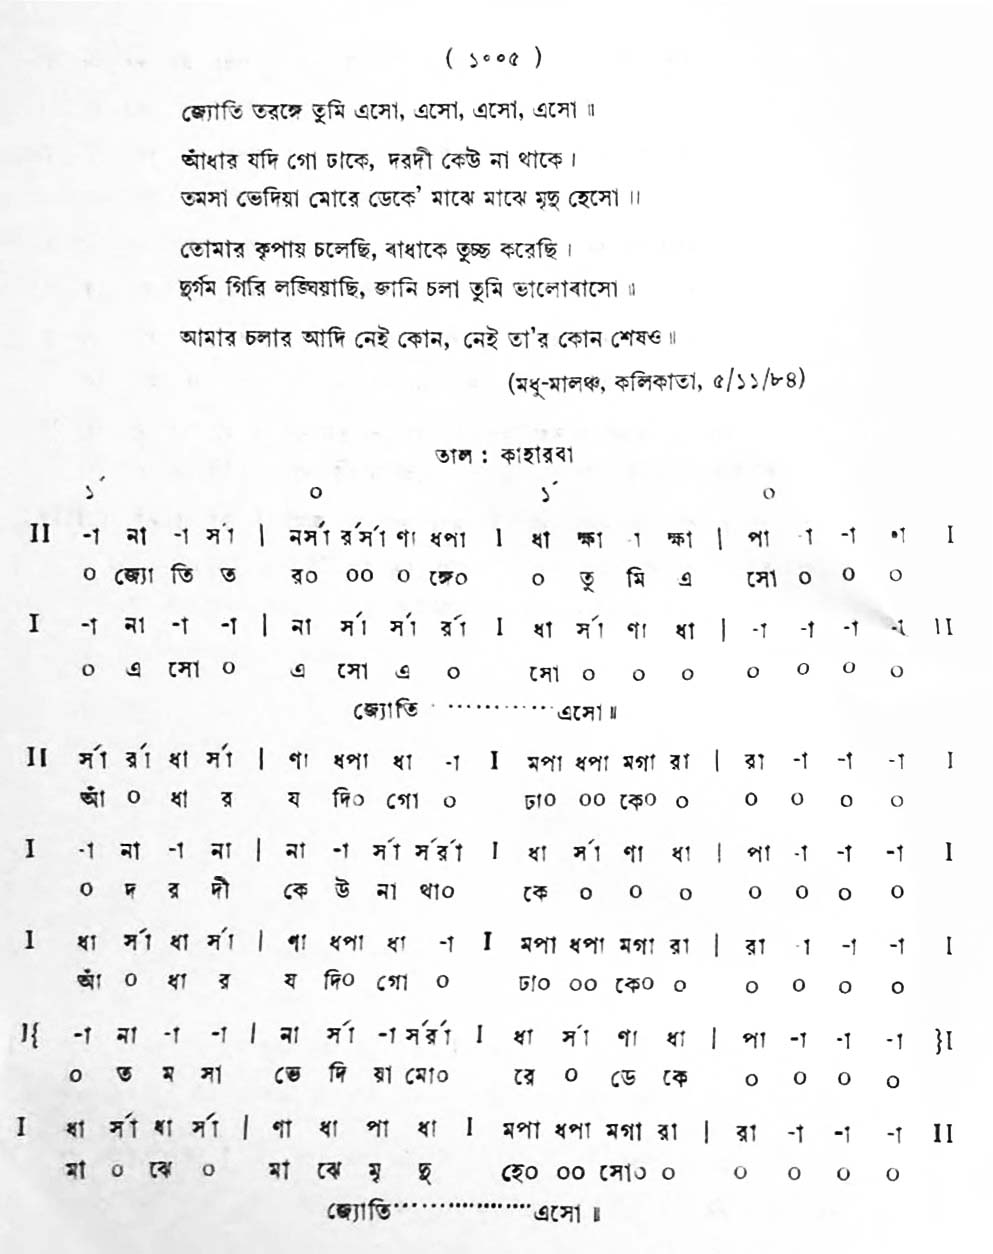 ( ১০০৫ )
জ্যোতি তরঙ্গে তুমি এসো, এসো, এসো, এসো ॥
আঁধার যদি গো ঢাকে, দরদী কেউ না থাকে ।
তমসা ভেদিয়া মোরে ডেকে' মাঝে মাঝে মৃদু হেসো ।।
তোমার কৃপায় চলেছি, বাধাকে তুচ্ছ করেছি ।
দুর্গম গিরি লঙ্ঘিয়াছি, জানি চলা তুমি ভালোবাসো ॥
আমার চলার আদি নেই কোন, নেই তা'র কোন শেষও ॥
(মধু-মালঞ্চ, কলিকাতা, ৫/১১/৮৪)
তাল : কাহারবা
১´ ০ ১´ ০
II -া না -া র্সা | নর্সা র্রর্সা ণা ধপা I ধা ক্ষা -া ক্ষা | পা -া -া -া I
০ জ্যো তি ত র০ ০০ ০ ঙ্গে০ ০ তু মি এ সো ০ ০ ০
I -া না -া -া | না র্সা র্সা র্রা I ধা র্সা ণা ধা | -া -া -া -া II
০ এ সো ০ এ সো এ ০ সো ০ ০ ০ ০ ০ ০ ০
জ্যোতি ............ এসো ॥
II র্সা র্রা ধা র্সা | ণা ধপা ধা -া I মপা ধপা মগা রা | রা -া -া -া I
আঁ ০ ধা র য দি০ গো ০ ঢা০ ০০ কে০ ০ ০ ০ ০ ০
I -া না -া না | না -া র্সা র্সর্রা I ধা র্সা ণা ধা | পা -া -া -া I
০ দ র দী কে উ না থা০ কে ০ ০ ০ ০ ০ ০ ০
I ধা র্সা ধা র্সা | ণা ধপা ধা -া I মপা ধপা মগা রা | রা -া -া -া I
আঁ ০ ধা র য দি০ গো ০ ঢা০ ০০ কে০ ০ ০ ০ ০ ০
I{ -া না -া -া | না র্সা -া র্সর্রা I ধা র্সা ণা ধা | পা -া -া -া }I
০ ত ম সা ভে দি য়া মো০ রে ০ ডে কে ০ ০ ০ ০
I ধা র্সা ধা র্সা | ণা ধা পা ধা I মপা ধপা মগা রা | রা -া -া -া II
মা ০ ঝে ০ মা ঝে মৃ দু হে০ ০০ সো০ ০ ০ ০ ০ ০
জ্যোতি.................এসো ॥